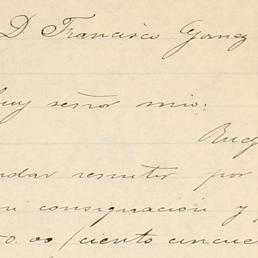 D Francisco Gomez
Muy señor mio:
Rueg
ndar remitir por
mi consignación y
50.00 (ciento cincue